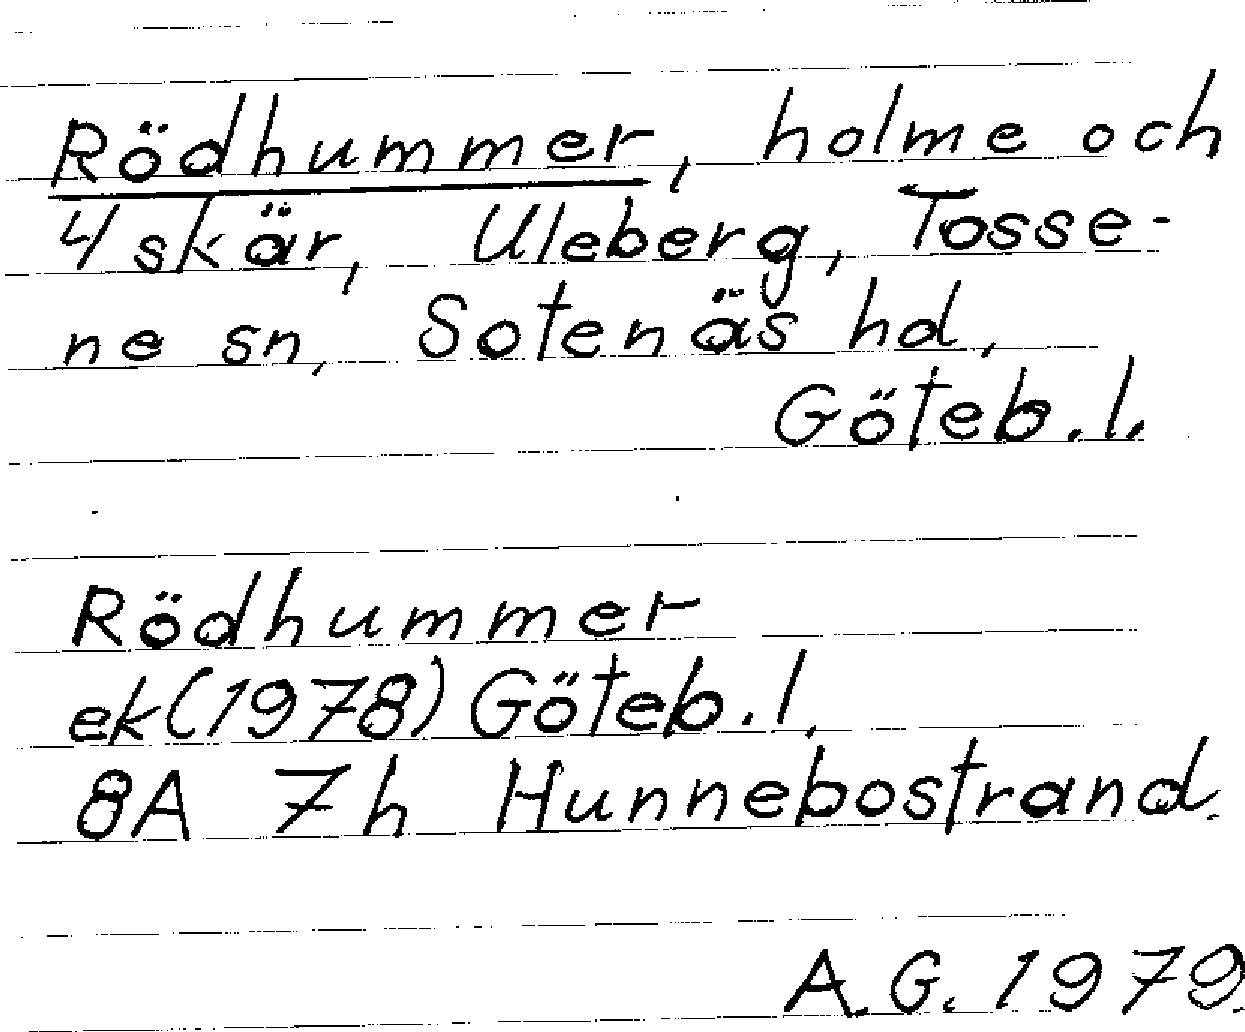 Rödhummer, holme och
4 skär, Uleberg, Tosse-
ne sn, Sotenäs hd,
Göteb. l.
Rödhummer
ek (1978) Göteb. l.
8A 7h Hunnebostrand.
A. G. 1979.